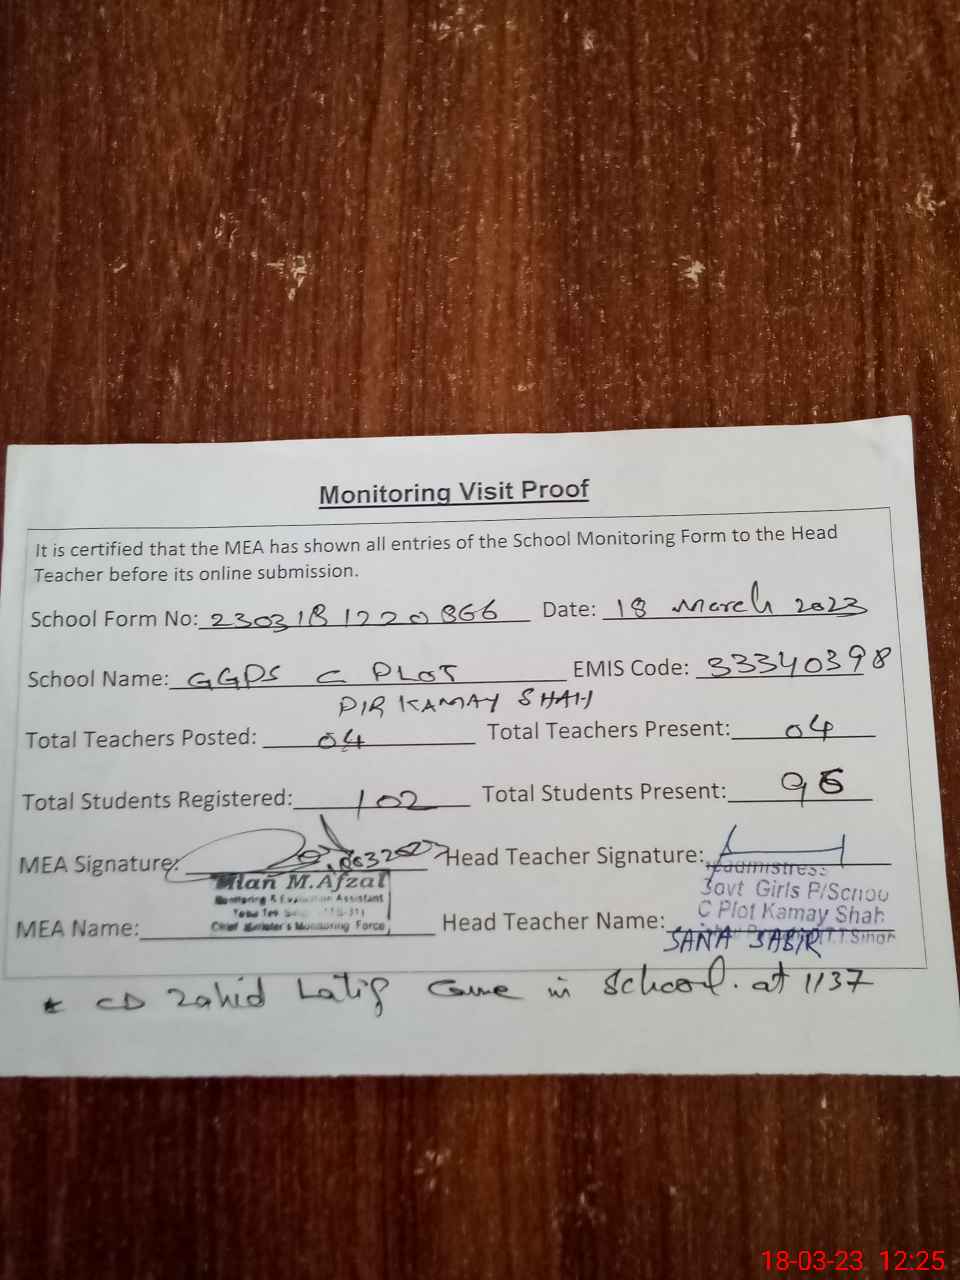 Monitoring Visit Proof
It is certified that the MEA has shown all entries of the School Monitoring Form to the Head
Teacher before its online submission.
School Form No: 2303181220866 Date: 18 March 2023
School Name: GGPS C PLOT EMIS Code: 33340398
PIR KAMAY SHAH
Total Teachers Posted: 04 Total Teachers Present: 04
Total Students Registered: 102 Total Students Present: 96
MEA Signature: Head Teacher Signature:
Mian M.Afzal
Monitoring & Evaluation Assistant
Chief Minister's Monitoring Force
Headmistress
Govt Girls P/School
C Plot Kamay Shah
T.T.Singh
MEA Name: Head Teacher Name: SANA SABIR
* CD Zahid Latif Came in School. at 1137
18-03-23 12:25